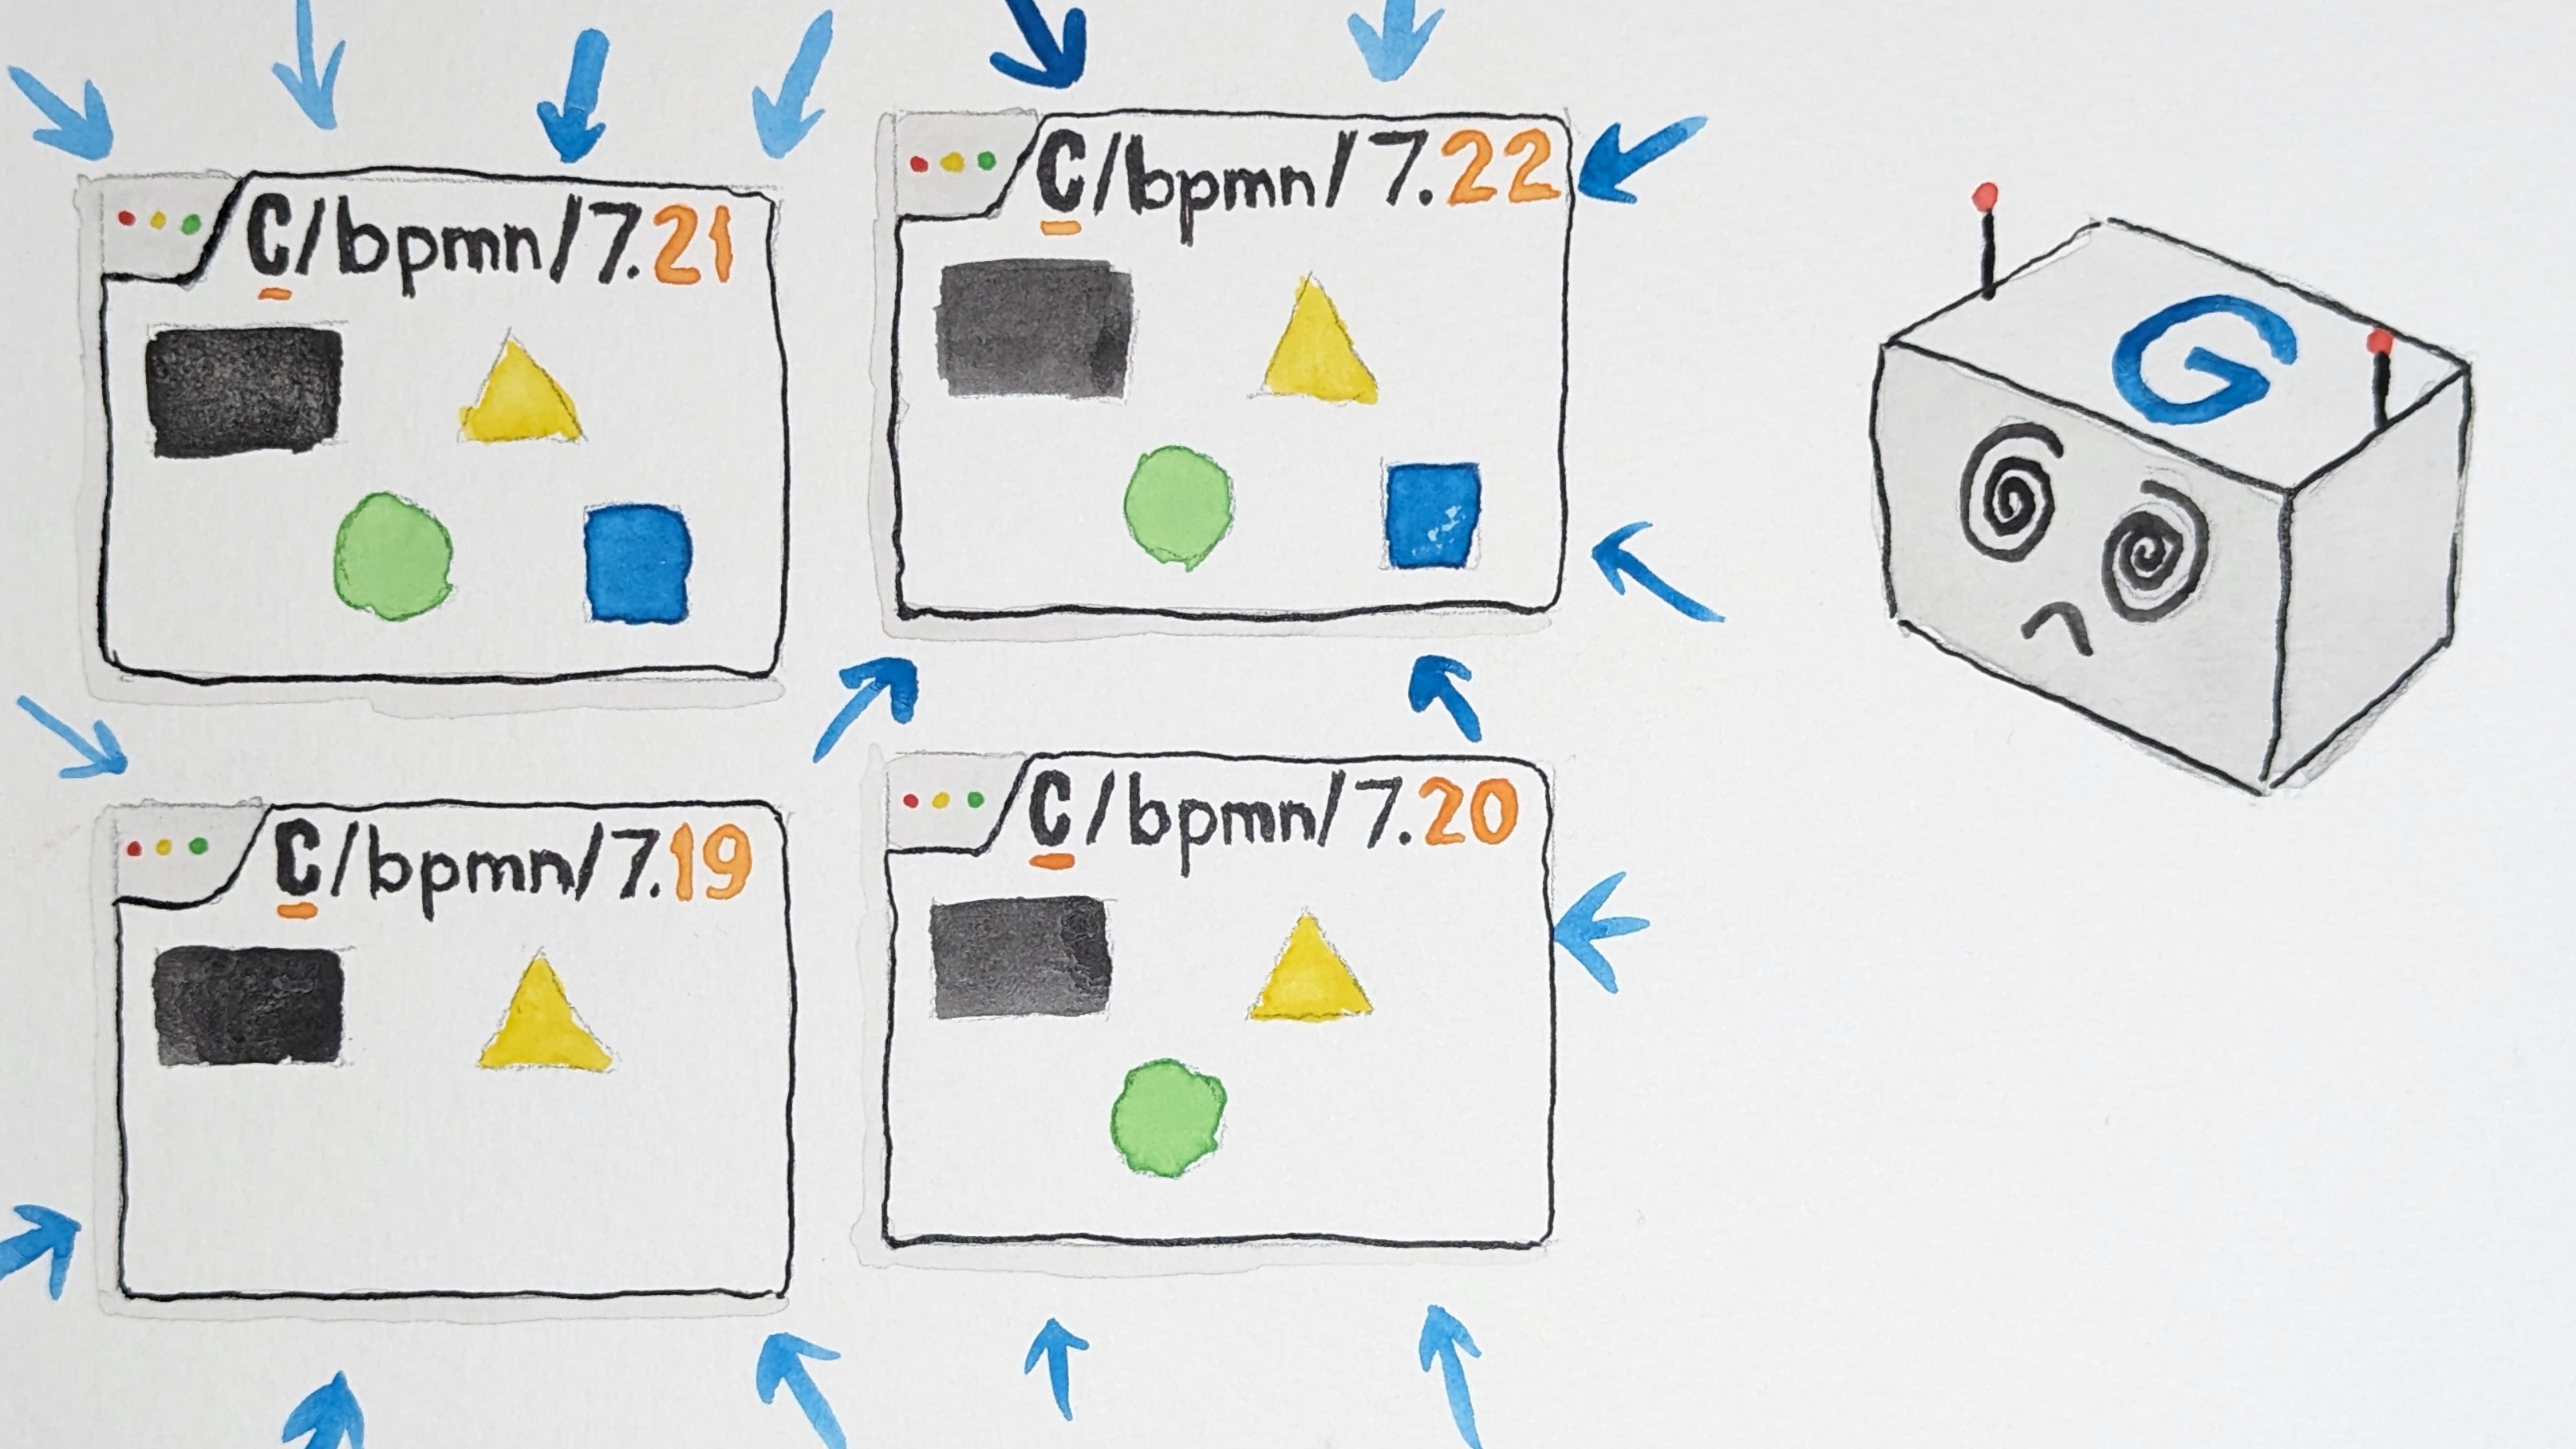 C/bpmn/7.21
C/bpmn/7.22
G
C/bpmn/7.19
C/bpmn/7.20